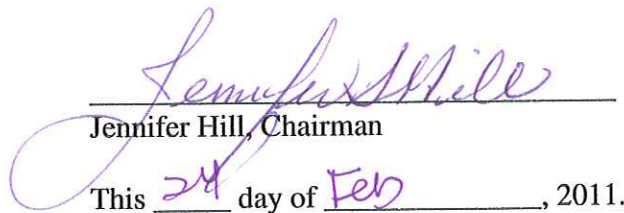 Jennifer S Hill
Jennifer Hill, Chairman
This 24 day of Feb, 2011.